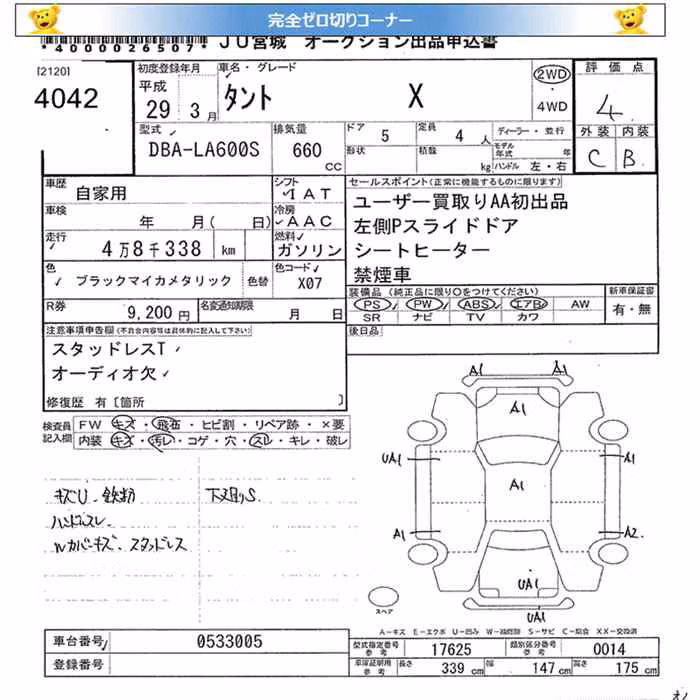 完全ゼロ切りコーナー
*4000026507* JU宮城 オークション出品申込書
[2120]
4042
初度登録年月
平成
29 3 月
車名・グレード
タント X
2WD
4WD
評価点
4
外装 内装
C B
型式
DBA-LA600S
排気量
660
cc
ドア 5
定員 4 人
形状
積数
kg
ディーラー・並行
モデル年式 年
ハンドル 左・右
車歴
自家用
シフト
I A T
車検
年 月( 日)
冷房
A A C
走行
4万8千338 km
燃料
ガソリン
色
ブラックマイカメタリック
色替
色コード
X07
R券
9,200 円
名変通知期限
月 日
セールスポイント(正常に機能するものに限ります)
ユーザー買取りAA初出品
左側Pスライドドア
シートヒーター
禁煙車
装備品 (純正品に限り○をつけてください)
PS PW ABS エアB AW
SR ナビ TV カワ
新車保証書
有・無
後日品
注意事項申告欄(不具合内容等は具体的に記入して下さい)
スタッドレスT
オーディオ欠
修復歴 有〔箇所 〕
検査員
記入欄
FW キズ・飛石・ヒビ割・リペア跡・×要
内装 キズ・汚レ・コゲ・穴・スレ・キレ・破レ
キズU 鉄粉
ハンドルスレ
Wカバーキズ、スタッドレス
下廻りS.
A1 A1
A1
UA1 A1
A1
A1 A2
UA1
UA1
スペア
A-キズ E-エクボ U-凹み W-補修跡 S-サビ C-腐食 XX-交換済
車台番号
0533005
登録番号
型式指定番号
参考
17625
類別区分番号
参考
0014
車庫証明用
参考
長さ 339 cm
幅 147 cm
高さ 175 cm